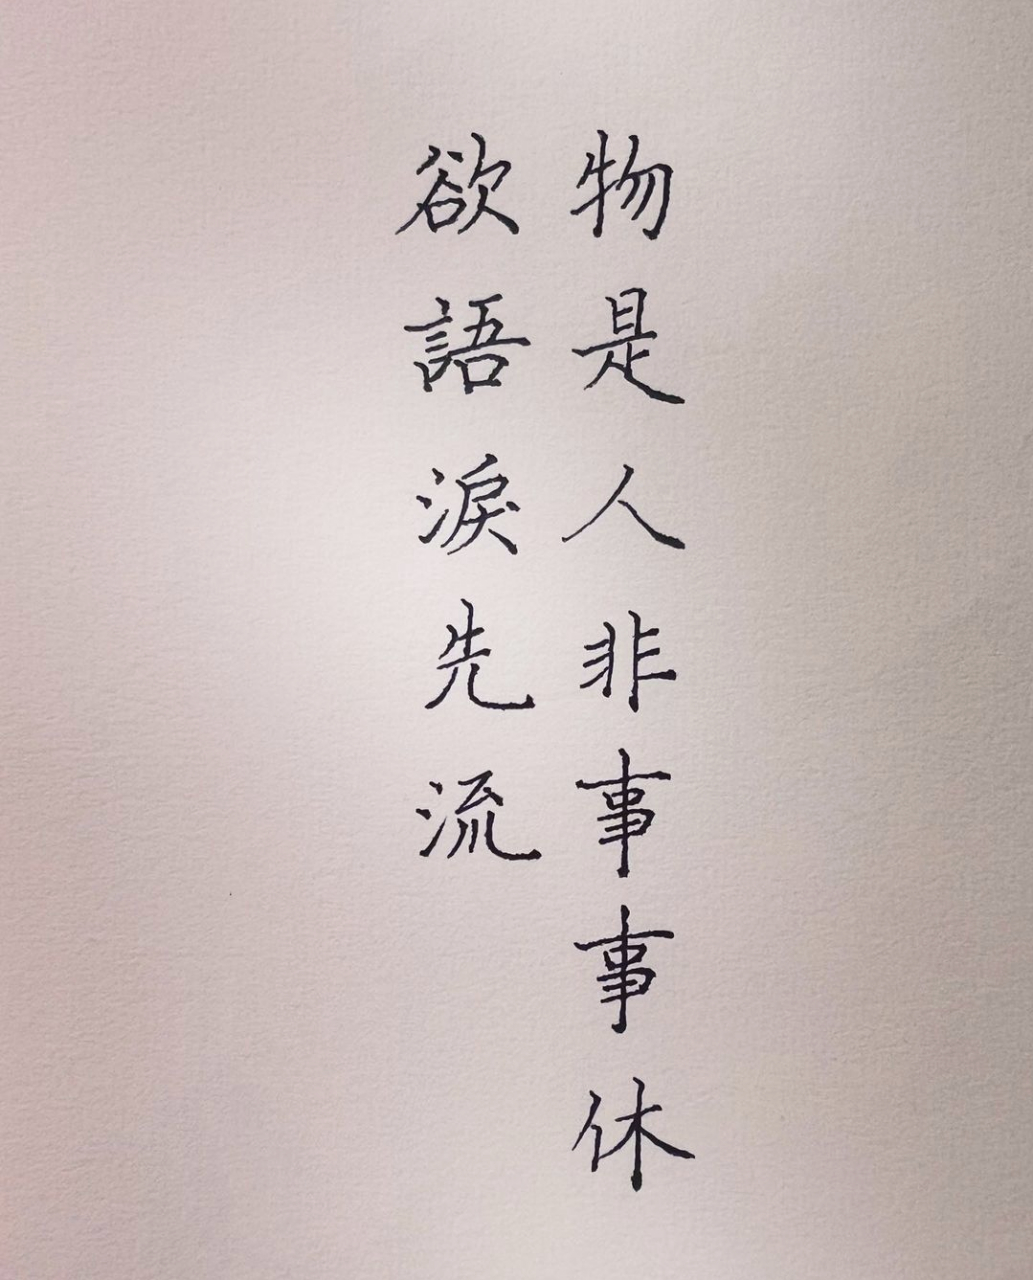 物是人非事事休
欲語淚先流